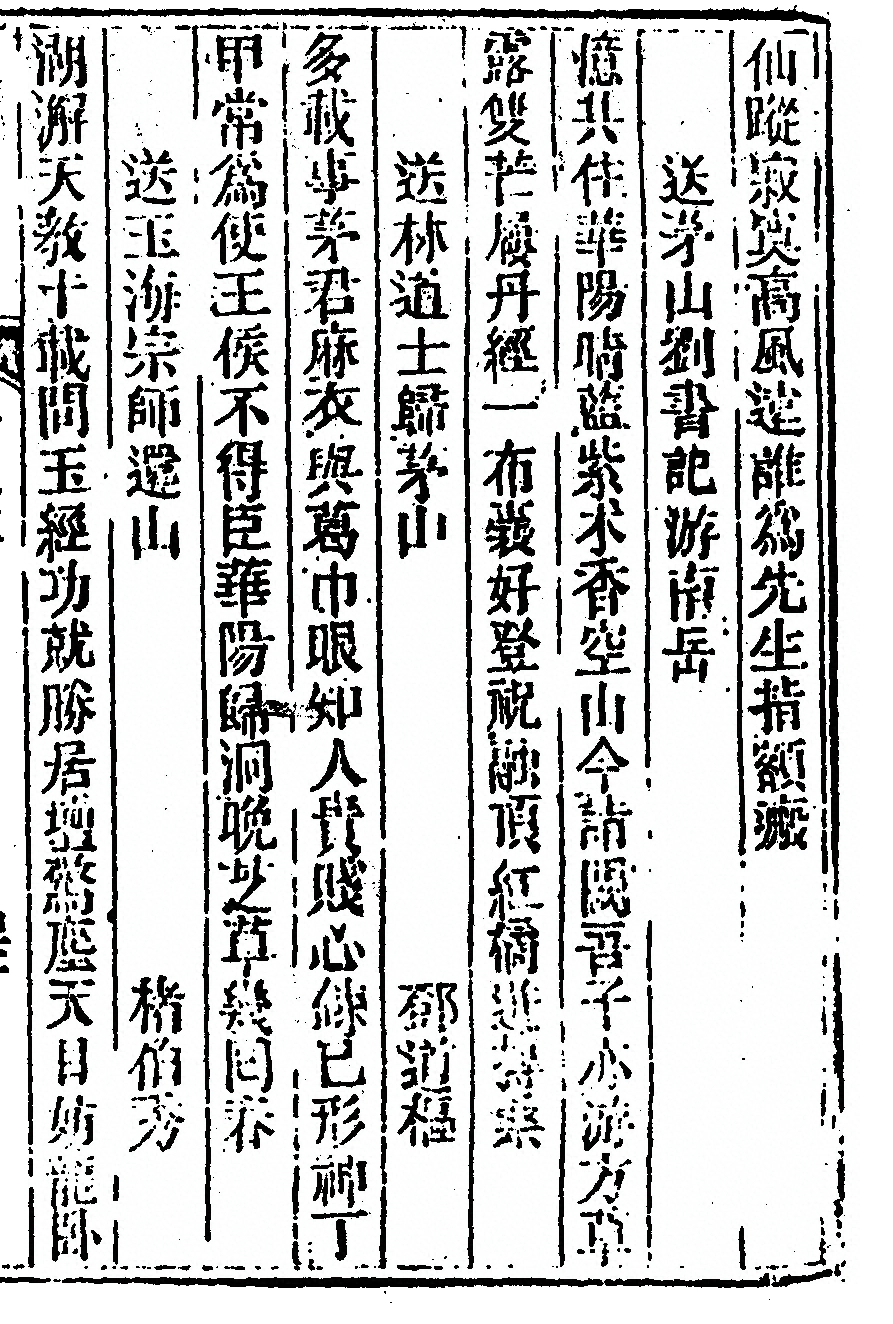 仙蹤寂寞高風遠誰爲先生指額瀫
送茅山劉書記游南岳
憶共住華陽晴藍紫朮香空山今請閱吾子亦游方草
露雙芒屨丹經一布囊好登祝融頂紅橘進
送林道士歸茅山 鄧道樞
多載事茅君麻衣與葛巾眼知人貴賤心鍊已形神丁
甲常爲使王侯不得臣華陽歸洞晚芝草幾回春
送玉海宗師還山 褚伯秀
湖澥天教十載間玉經功就勝居壇鶩塵天目妨龍卧